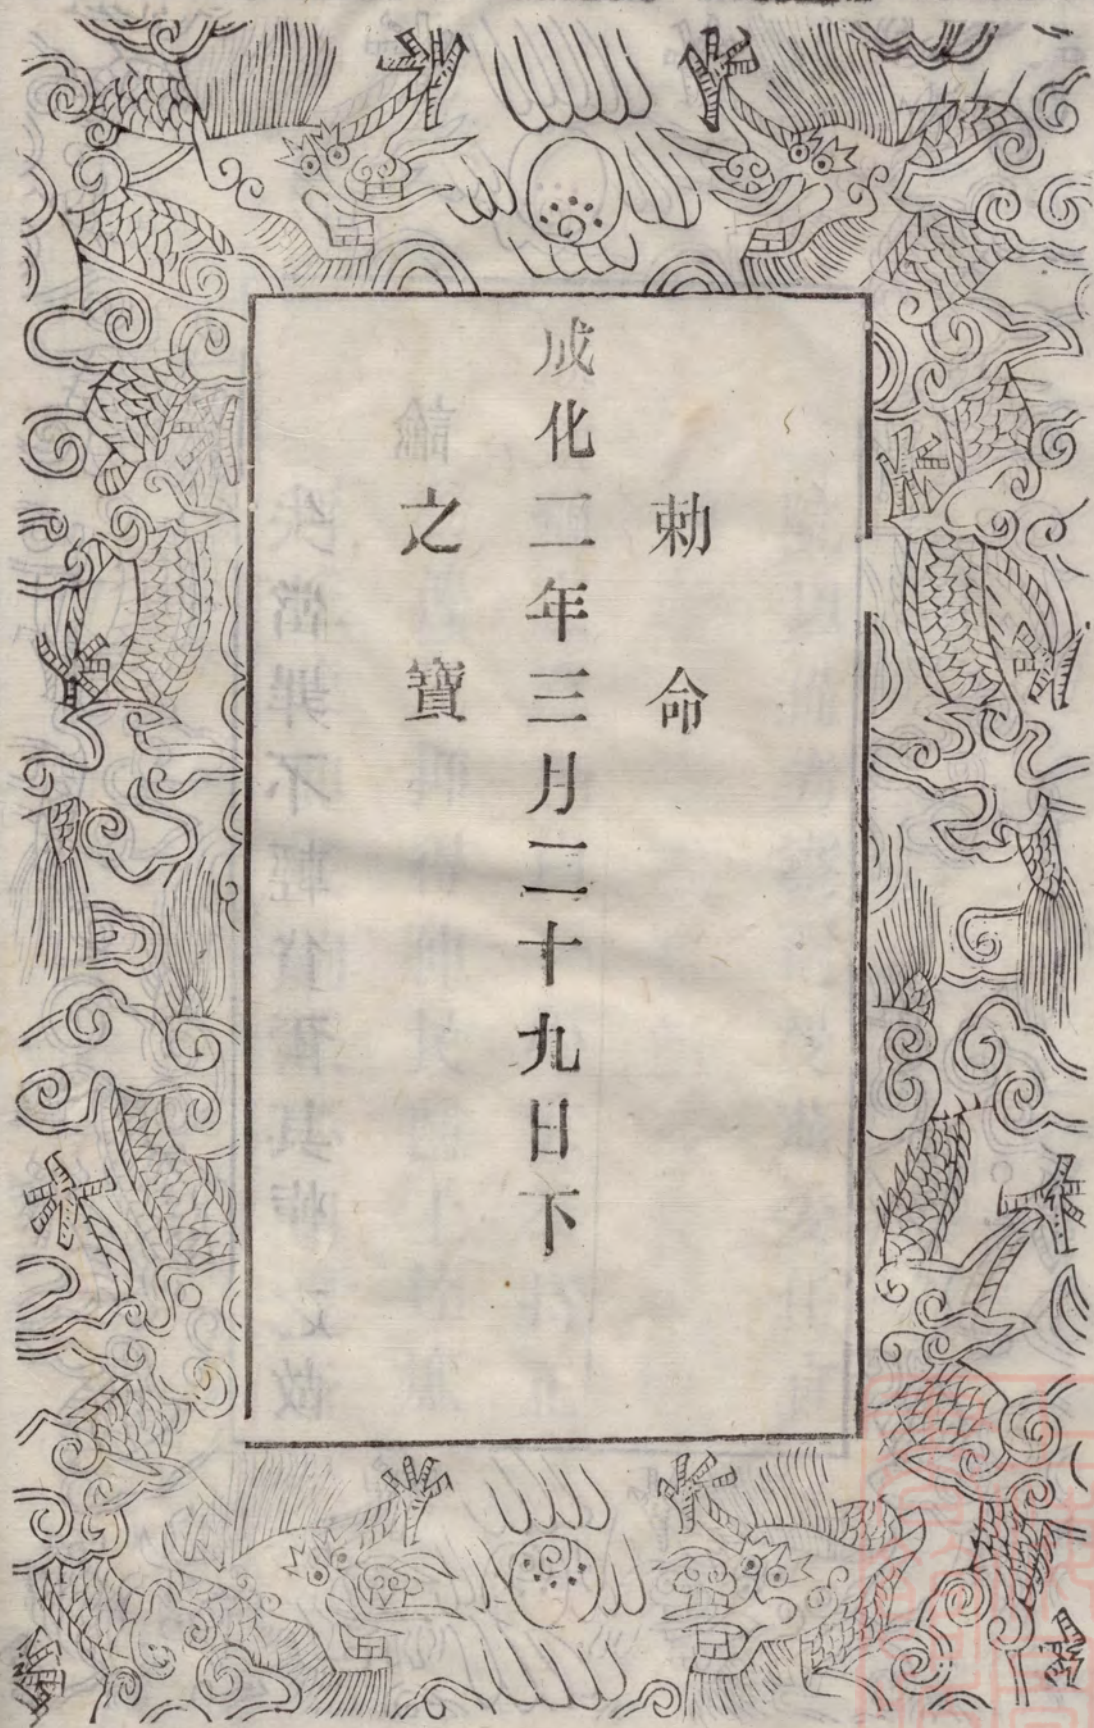 勅命
成化二年三月二十九日下
之寶